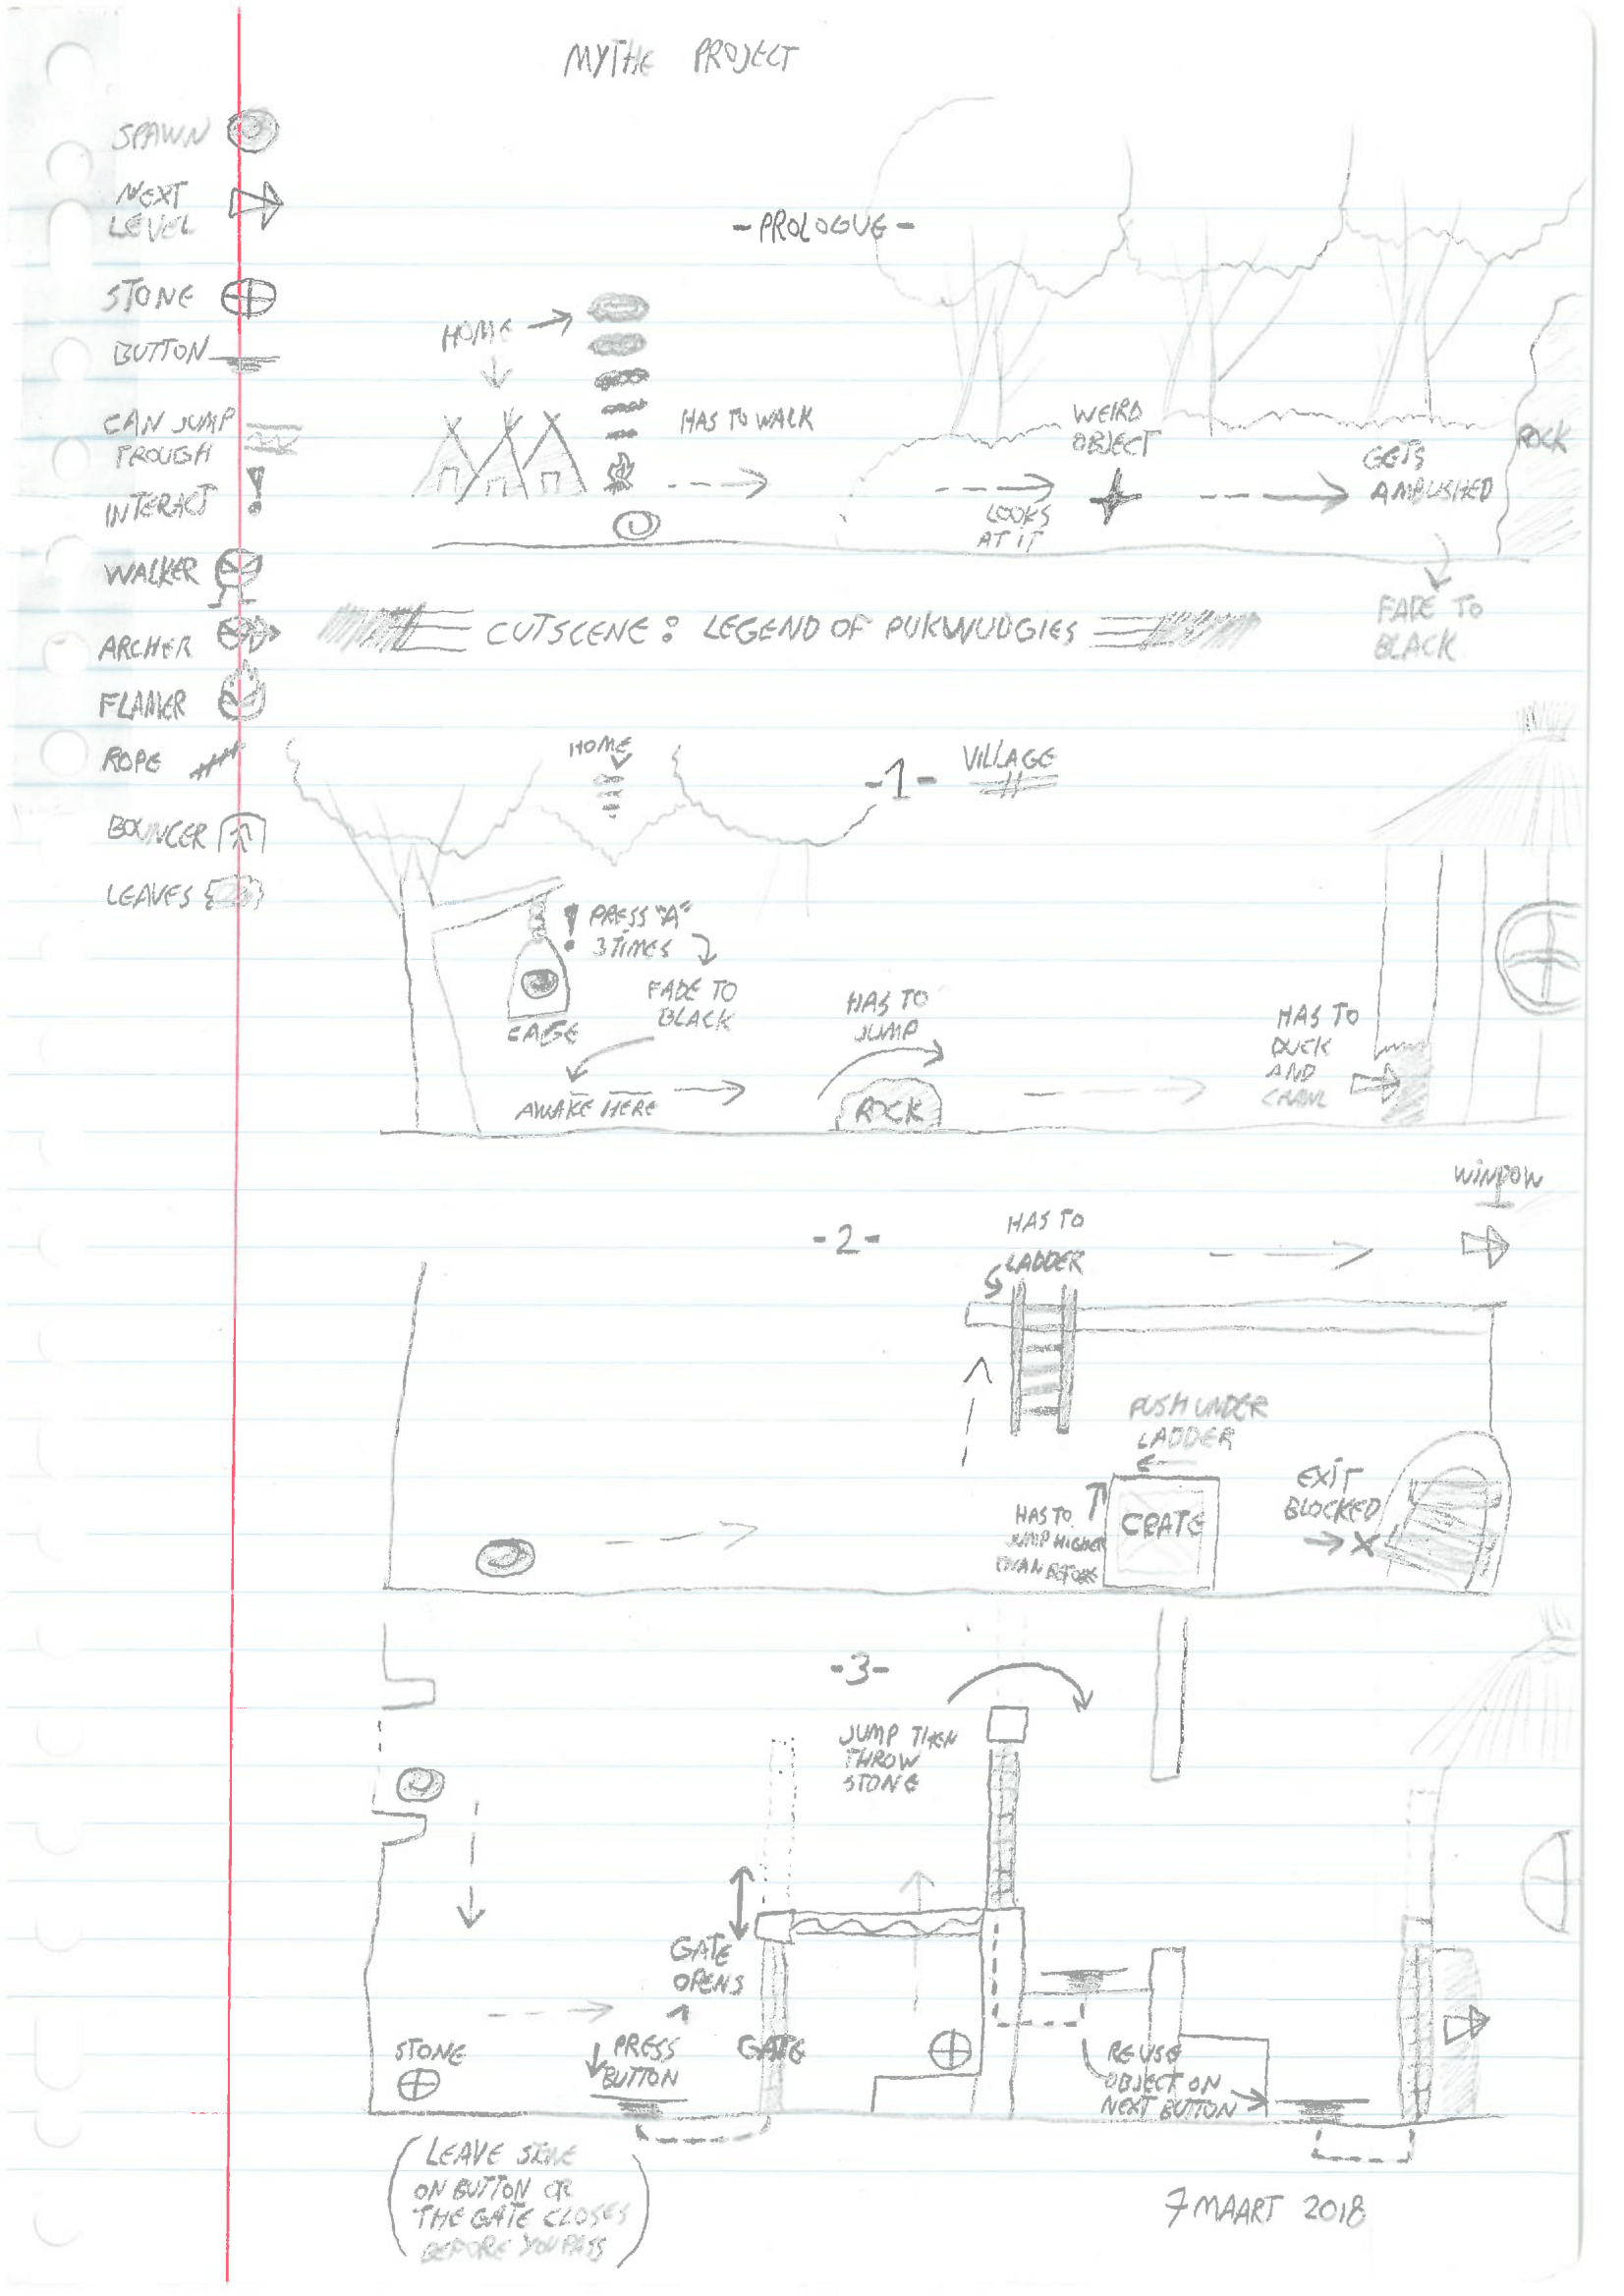 MYTHE PROJECT
SPAWN
NEXT
LEVEL
STONE
BUTTON
CAN JUMP
TROUGH
INTERACT
WALKER
ARCHER
FLAMER
ROPE
BOUNCER
LEAVES
- PROLOGUE -
HOME
HAS TO WALK
LOOKS
AT IT
WEIRD
OBJECT
GETS
AMBUSHED
ROCK
FADE TO
BLACK
CUTSCENE: LEGEND OF PUKWUDGIES
-1-
VILLAGE
HOME
! PRESS "A"
3 TIMES
CAGE
FADE TO
BLACK
AWAKE HERE
HAS TO
JUMP
ROCK
HAS TO
DUCK
AND
CRAWL
-2-
HAS TO
LADDER
WINDOW
PUSH UNDER
LADDER
HAS TO
JUMP HIGHER
THAN BEFORE
CRATE
EXIT
BLOCKED
X
-3-
JUMP THEN
THROW
STONE
GATE
OPENS
STONE
PRESS
BUTTON
GATE
REUSE
OBJECT ON
NEXT BUTTON
(LEAVE STONE
ON BUTTON OR
THE GATE CLOSES
BEFORE YOU PASS)
7 MAART 2018